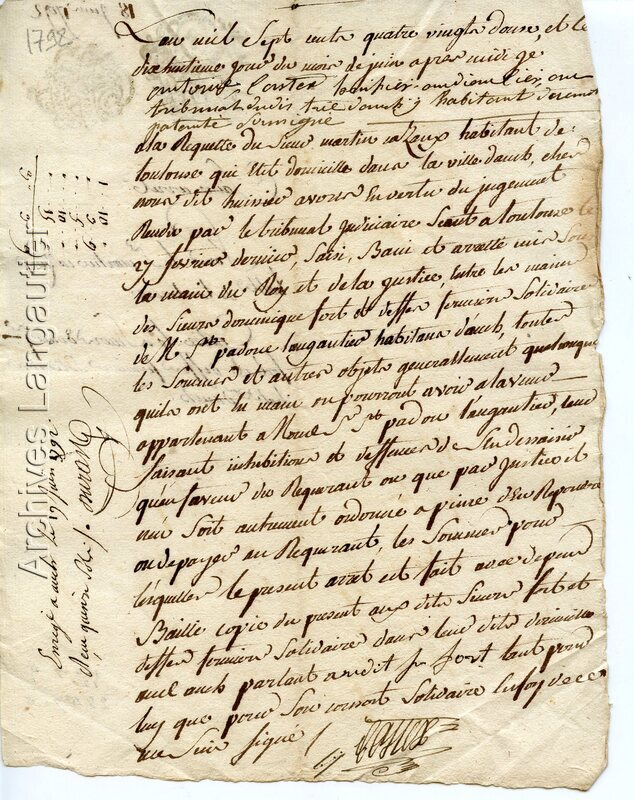 18 juin 1792
1792
L'an mil Sept cents quatre vingts douse, et le
dixhuitieme jour du mois de juin apres midi je
antoine Castex huissier audiancier, au
tribunal du district d'auch y habitant
patenté Soussigné
ala Requette du Sieur martin habitant de
toulouse qui Elit domicille dans la ville dauch, chez
nous dit huissier avons En vertu du jugement
Rendu par le tribunal judiciaire Seant a toulouse le
27 fevrier dernier, Saisi, Bani et arretté mis Sous
la main du Roy et de la justice, entre les mains
des Sieurs dominique fort et desses fermiers Solidaires
de Mr Sr padone Langautier habitans dauch, toutes
les Sommes et autres objets generallement quelconque
quils ont En main ou pourront avoir a lavenir
appartenant a Mond. Sr St padou Langautier, leur
faisant inhibitions et deffences de S'en dessaisir
quen faveur du Requerant ou que par justice il
nen Soit autrement ordonné a peine d'En Repondre
ou de payer au Requerant, les Sommes pour
lesquelles le present arret est fait avec depens
Baillé copie du present aux dits Sieurs fort et
desses fermiers Solidaires dans leur dits domicilles
aud auch parlant audit Sr fort tant pour
luy que pour Son consort Solidaire En foy de ce
me Suis Signé
Castex
Enregé a auch le 19 juin 1792
Reçu quinze Sols
Archives Langautier